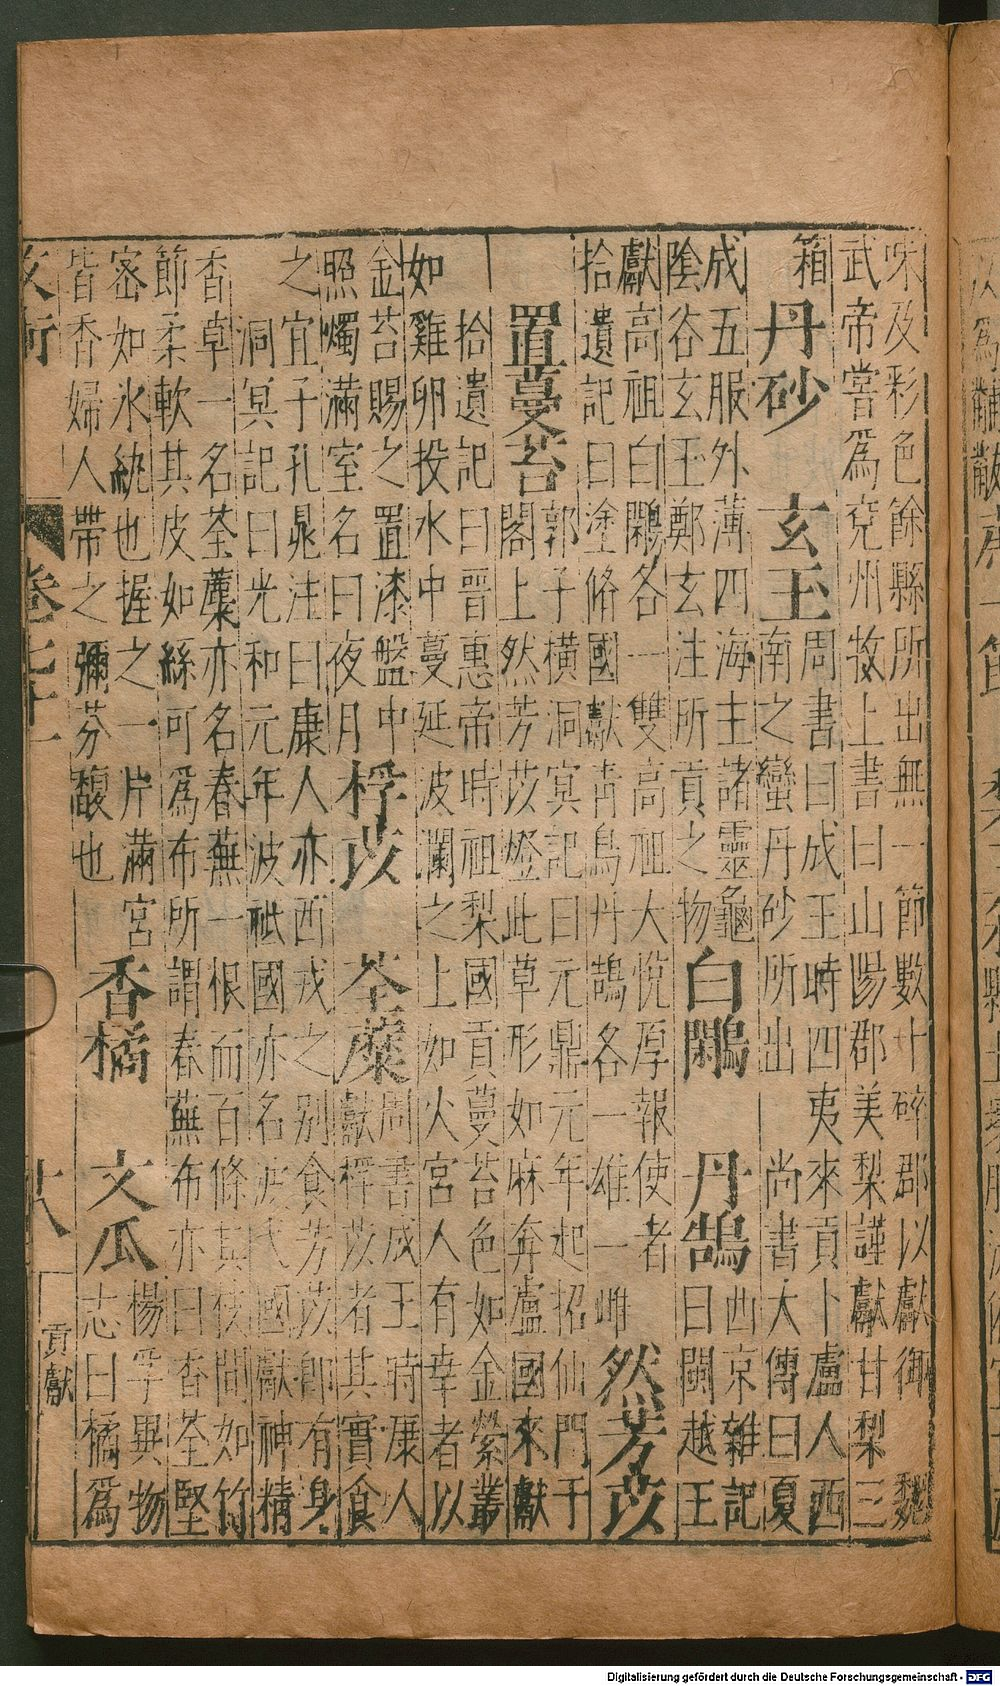 味及彩色餘縣所出無一節數十碎郡以獻御 魏
武帝嘗爲兗州牧上書曰山陽郡美梨謹獻甘梨三
箱 丹砂 玄玉 周書曰成王時四夷來貢卜盧人西
南之蠻丹砂所出 尚書大傳曰夏
成五服外薄四海主諸靈龜 白鷴 丹鵠 西京雜記
陰谷玄玉鄭玄注所貢之物 曰閩越王
獻高祖白鷴各一雙高祖大悅厚報使者
拾遺記曰塗脩國獻靑鳥丹鵠各一雄一雌 然芳苡
郭子橫洞冥記曰元鼎元年起招仙門于
置蔓苔 閣上然芳苡燈此草形如麻奔盧國來獻
拾遺記曰晉惠帝時祖梨國貢蔓苔色如金縈叢
如雞卵投水中蔓延波瀾之上如火宮人有幸者以
金苔賜之置漆盤中 桴苡 荃蘪 周書成王時康人
照燭滿室名曰夜月 獻桴苡者其實食
之宜子孔晁注曰康人亦西戎之别食芳苡卽有身
洞冥記曰光和元年波祗國亦名波弋國獻神精
香草一名荃蘪亦名春蕪一根而百條其枝間如竹
節柔軟其皮如絲可爲布所謂春蕪布亦曰香荃堅
密如氷紈也握之一片滿宮 香橘 文瓜 楊孚異物
皆香婦人帶之彌芬馥也 志曰橘爲
卷七十一
十八
貢獻
Digitalisierung gefördert durch die Deutsche Forschungsgemeinschaft - DFG